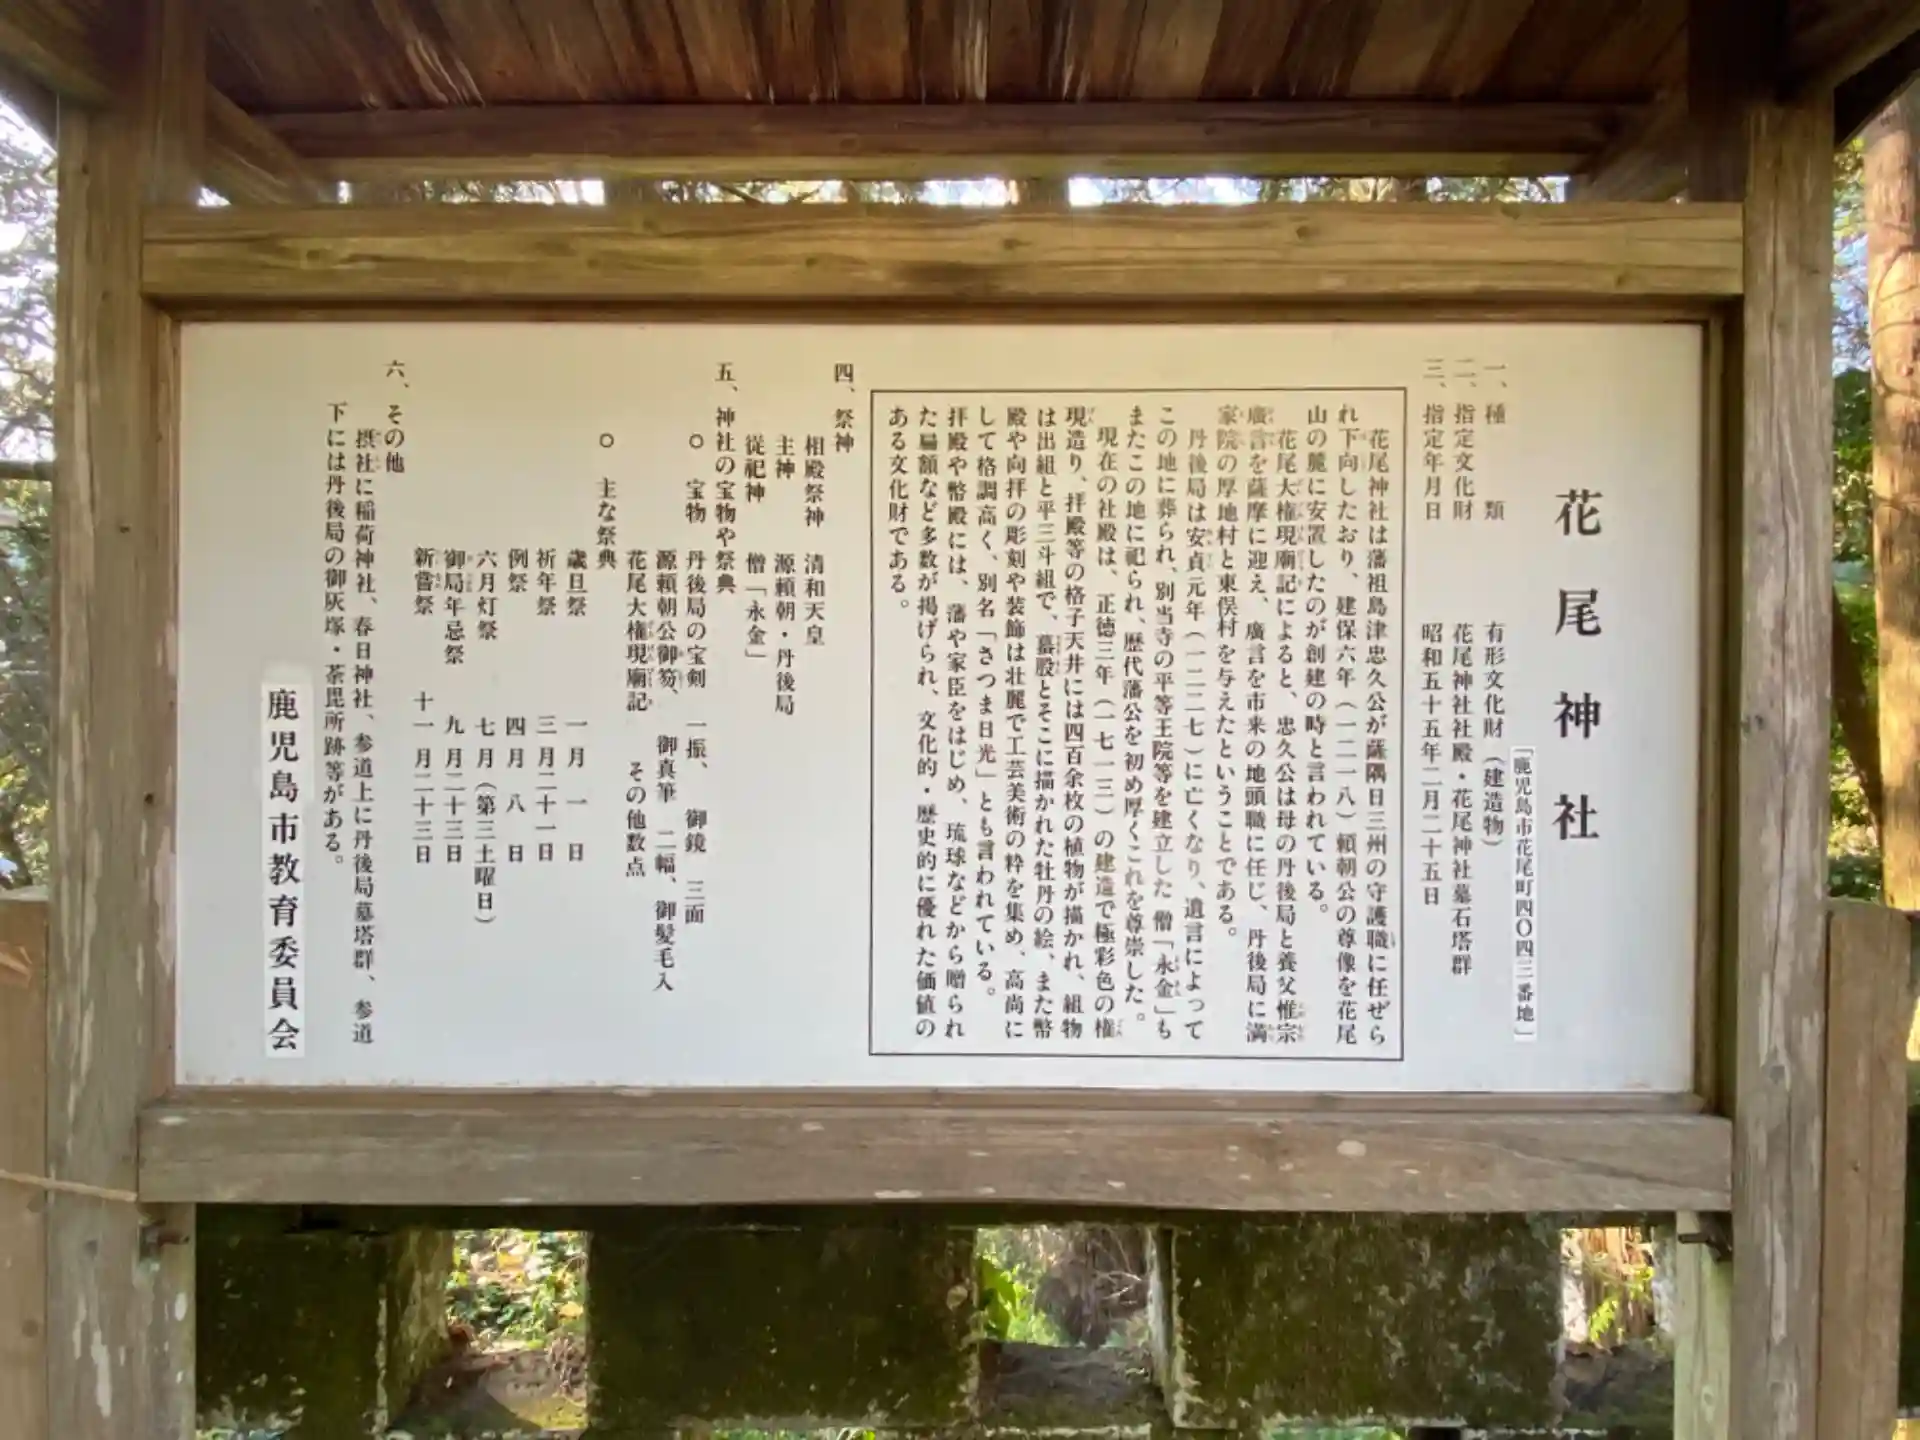 花尾神社
「鹿児島市花尾町四〇四三番地」
一、種　類　有形文化財（建造物）
二、指定文化財　花尾神社社殿・花尾神社墓石塔群
三、指定年月日　昭和五十五年二月二十五日
花尾神社は藩祖島津忠久公が薩隅日三州の守護職に任ぜら
れ下向したおり、建保六年（一二一八）頼朝公の尊像を花尾
山の麓に安置したのが創建の時と言われている。
花尾大権現廟記によると、忠久公は母の丹後局と養父惟宗
廣言を薩摩に迎え、廣言を市来の地頭職に任じ、丹後局に満
家院の厚地村と東俣村を与えたということである。
丹後局は安貞元年（一二二七）に亡くなり、遺言によって
この地に葬られ、別当寺の平等王院等を建立した僧「永金」も
またこの地に祀られ、歴代藩公を初め厚くこれを尊崇した。
現在の社殿は、正徳三年（一七一三）の建造で極彩色の権
現造り、拝殿等の格子天井には四百余枚の植物が描かれ、組物
は出組と平三斗組で、蟇股とそこに描かれた牡丹の絵、また幣
殿や向拝の彫刻や装飾は壮麗で工芸美術の粋を集め、高尚に
して格調高く、別名「さつま日光」とも言われている。
拝殿や幣殿には、藩や家臣をはじめ、琉球などから贈られ
た扁額など多数が掲げられ、文化的・歴史的に優れた価値の
ある文化財である。
四、祭神
相殿祭神　清和天皇
主神　源頼朝・丹後局
従祀神　僧「永金」
五、神社の宝物や祭典
○　宝物　丹後局の宝剣　一振、　御鏡　三面
源頼朝公御笏、　御真筆　二幅、御髪毛入
花尾大権現廟記　その他数点
○　主な祭典
歳旦祭　一月　一　日
祈年祭　三月二十一日
例祭　四月　八　日
六月灯祭　七月（第三土曜日）
御局年忌祭　九月二十三日
新嘗祭　十一月二十三日
六、その他
摂社に稲荷神社、春日神社、参道上に丹後局墓塔群、参道
下には丹後局の御灰塚・荼毘所跡等がある。
鹿児島市教育委員会